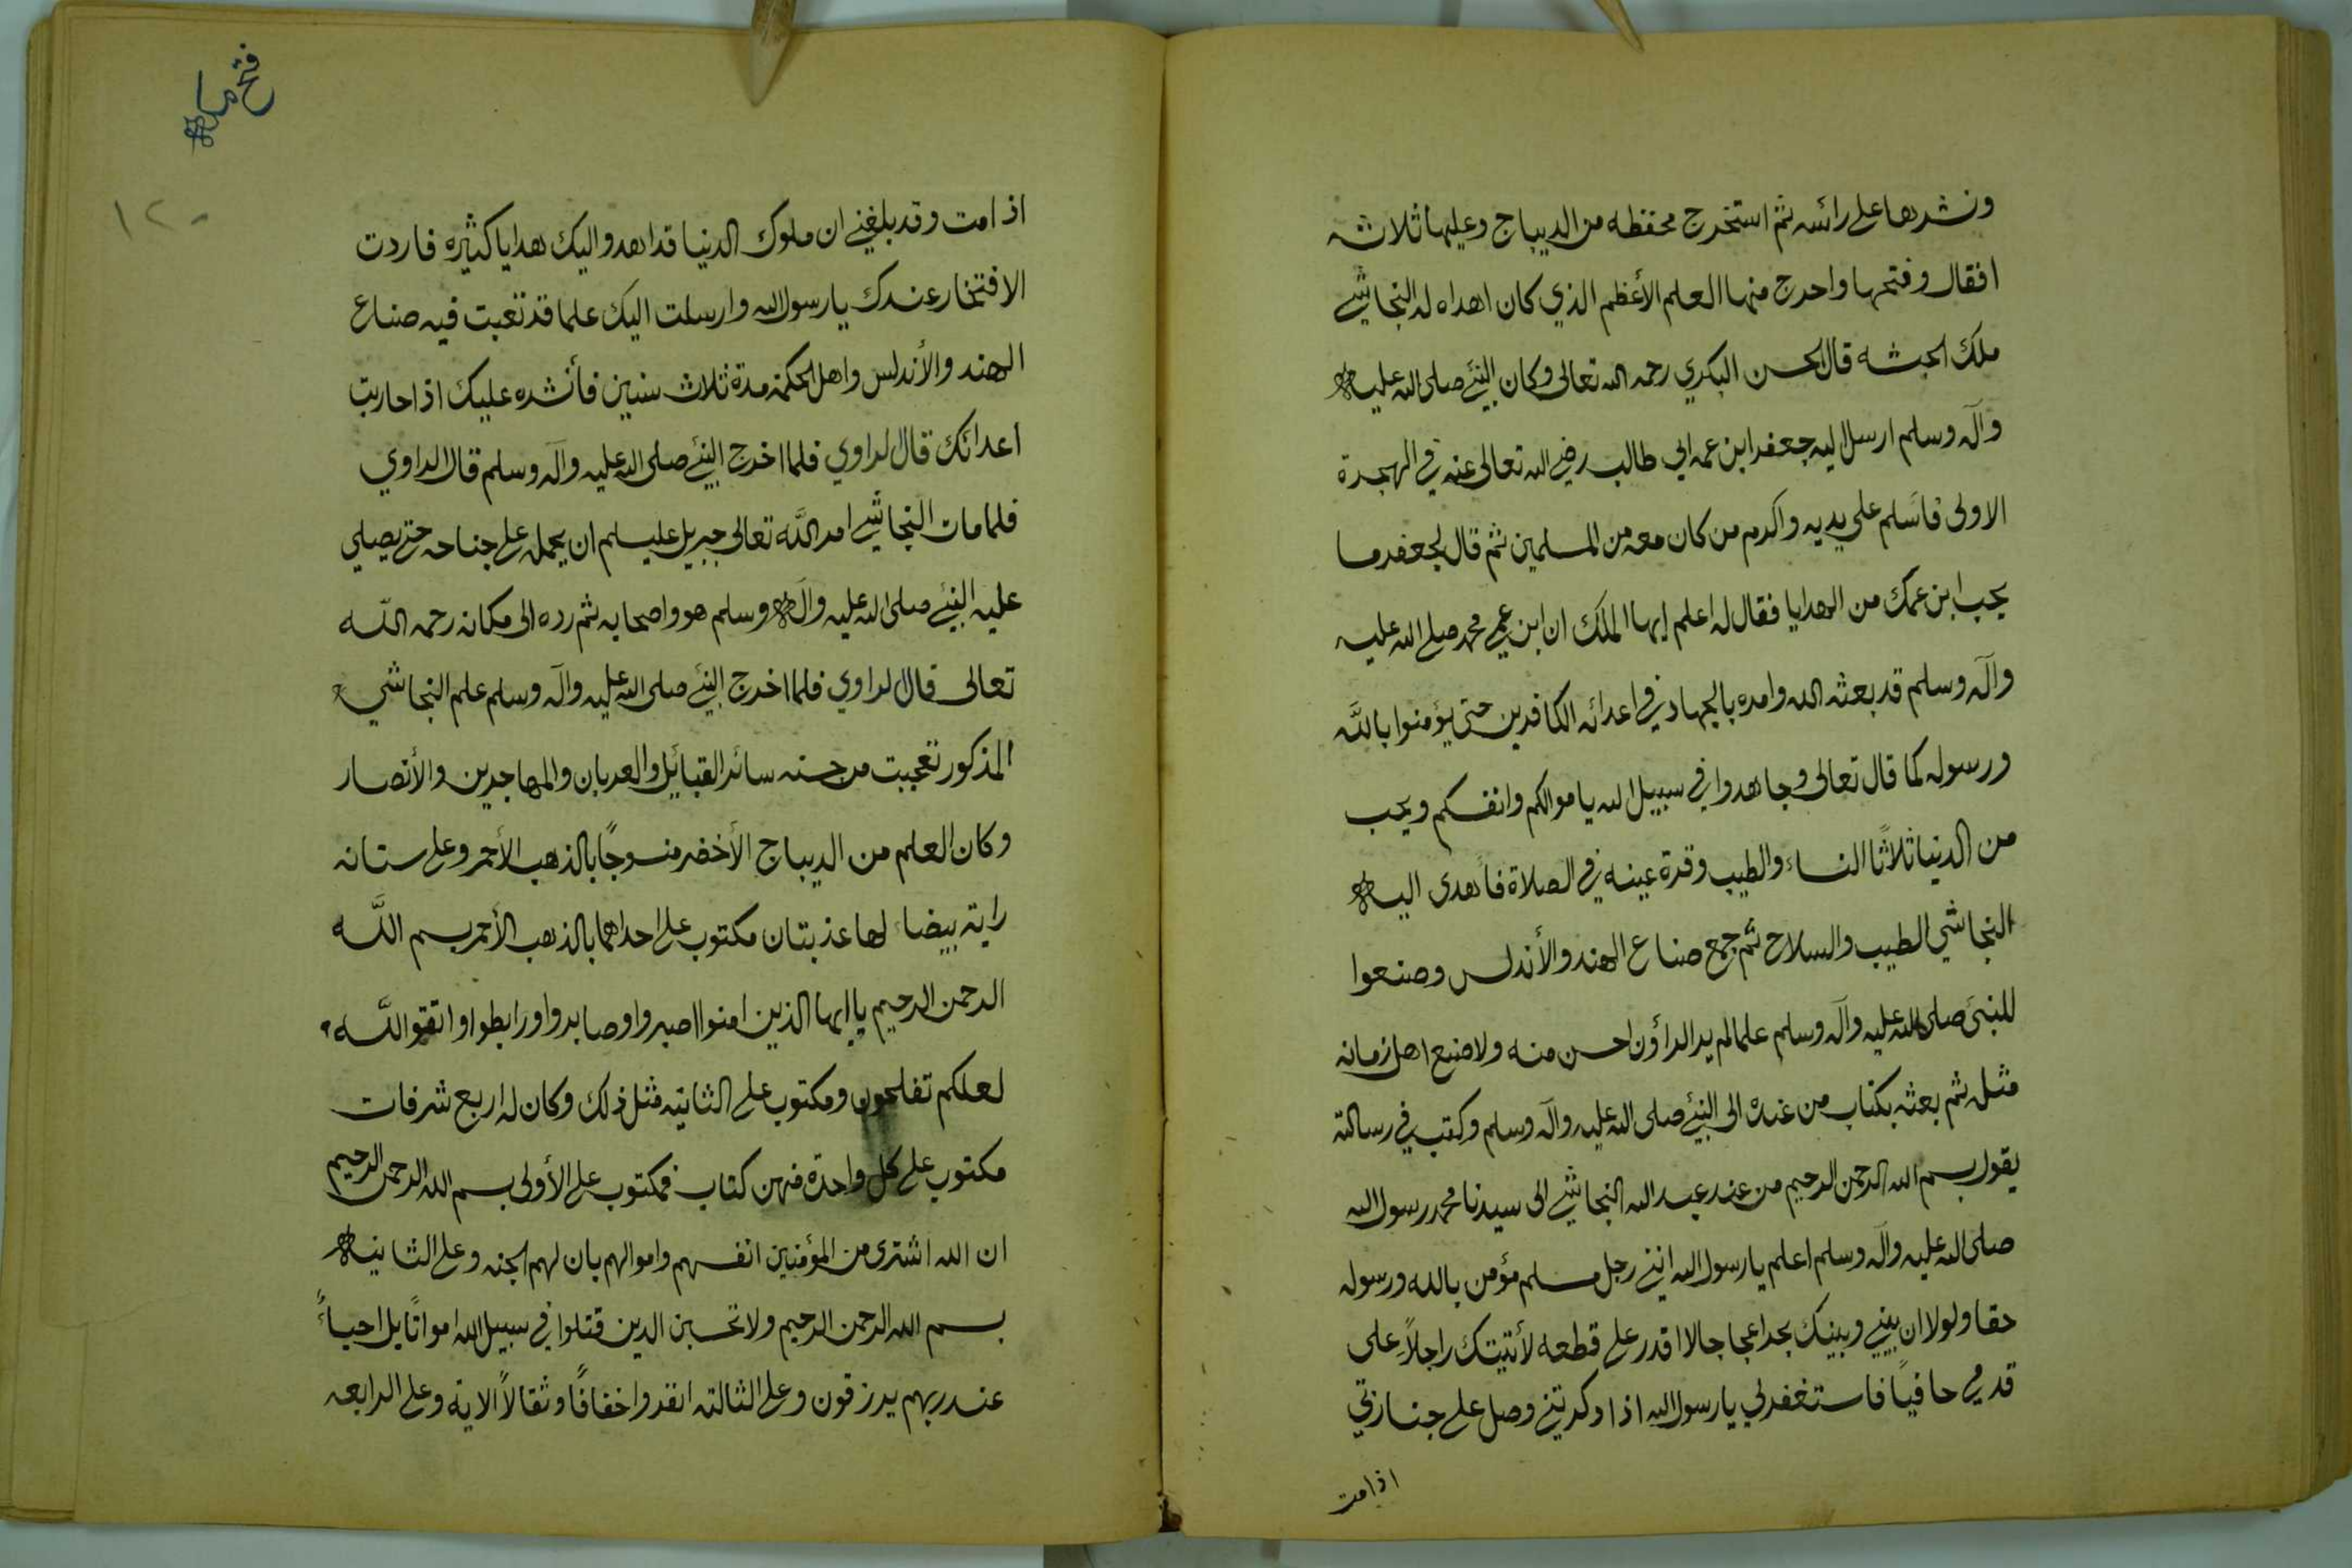 ونشرها على رائسه ثم استخرج محفظه من الديباج وعليها ثلاثة
اقفال وفتحها واحرج منها العلم الأعظم الذي كان اهداه له النجاشي
ملك الحبشه قال الحسن البكري رحمه الله تعالى وكان النبي صلى الله عليه
وآله وسلم ارسل اليه جعفر ابن عمه ابي طالب رضي الله تعالى عنه في الهجرة
الاولى فاسلم على يديه واكرم من كان معه من المسلمين ثم قال لجعفر ما
يحب ابن عمك من الهدايا فقال له اعلم ايها الملك ان ابن عمي محمد صلى الله عليه
وآله وسلم قد بعثه الله وامره بالجهاد في اعدائه الكافرين حتى يؤمنوا بالله
ورسوله كما قال تعالى وجاهدوا في سبيل الله باموالكم وانفسكم ويحب
من الدنيا ثلاثًا النساء والطيب وقرة عينه في الصلاة فأهدى اليه
النجاشي الطيب والسلاح ثم جمع صناع الهند والأندلس وصنعوا
للنبي صلى الله عليه وآله وسلم علما لم ير الراؤن احسن منه ولا صنع اهل زمانه
مثله ثم بعثه بكتاب من عنده الى النبي صلى الله عليه وآله وسلم وكتب في رسالته
يقول بسم الله الرحمن الرحيم من عند عبد الله النجاشي الى سيدنا محمد رسول الله
صلى الله عليه وآله وسلم اعلم يا رسول الله انني رجل مسلم مؤمن بالله ورسوله
حقا ولولا ان بيني وبينك بحرا عجاجا لا اقدر على قطعه لأتيتك راجلاً على
قدمي حافيًا فاستغفر لي يا رسول الله اذا ذكرتني وصل على جنازتي
اذا مت
فتح مكه
١٢٠
اذا مت وقد بلغني ان ملوك الدنيا قد اهدوا اليك هدايا كثيره فاردت
الافتخار عندك يا رسول الله وارسلت اليك علما قد تعبت فيه صناع
الهند والأندلس واهل الحكمة مدة ثلاث سنين فأنشره عليك اذا حاربت
اعدائك قال لراوي فلما اخرج النبي صلى الله عليه وآله وسلم قال الراوي
فلما مات النجاشي امر اللَّه تعالى جبريل عليه سلم ان يحمله على جناحه حتى يصلي
عليه النبي صلى الله عليه وآله وسلم هو واصحابه ثم رده الى مكانه رحمه اللّه
تعالى قال لراوي فلما اخرج النبي صلى الله عليه وآله وسلم علم النجاشي
المذكور تعجبت من حسنه سائر القبائل والعربان والمهاجرين والأنصار
وكان العلم من الديباج الأخضر منسوجًا بالذهب الأحمر وعلى سنانه
راية بيضاء لها عذبتان مكتوب على احداهما بالذهب الأحمر بسم اللَّه
الرحمن الرحيم يا ايها الذين امنوا اصبروا وصابروا ورابطوا واتقوا اللَّه
لعلكم تفلحون ومكتوب على الثانيه مثل ذلك وكان له اربع شرفات
مكتوب على كل واحدة منهن كتاب فمكتوب على الأولى بسم الله الرحمن الرحيم
ان الله اشترى من المؤمنين انفسهم واموالهم بان لهم الجنه وعلى الثانيه
بسم الله الرحمن الرحيم ولا تحسبن الدين قتلوا في سبيل الله امواتًا بل احياءً
عند ربهم يرزقون وعلى الثالثه انفروا خفافًا وثقالاً الايه وعلى الرابعه